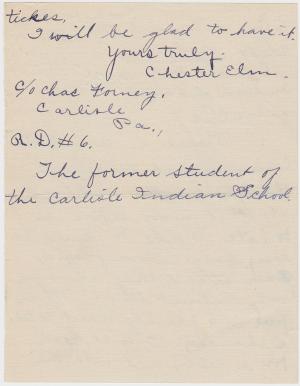 tickes,
I will be glad to have it.
Yours truly.
Chester Elm.
c/o Chas Forney,
Carlisle
Pa.,
R.D. #6.
The former student of
the Carlisle Indian School.